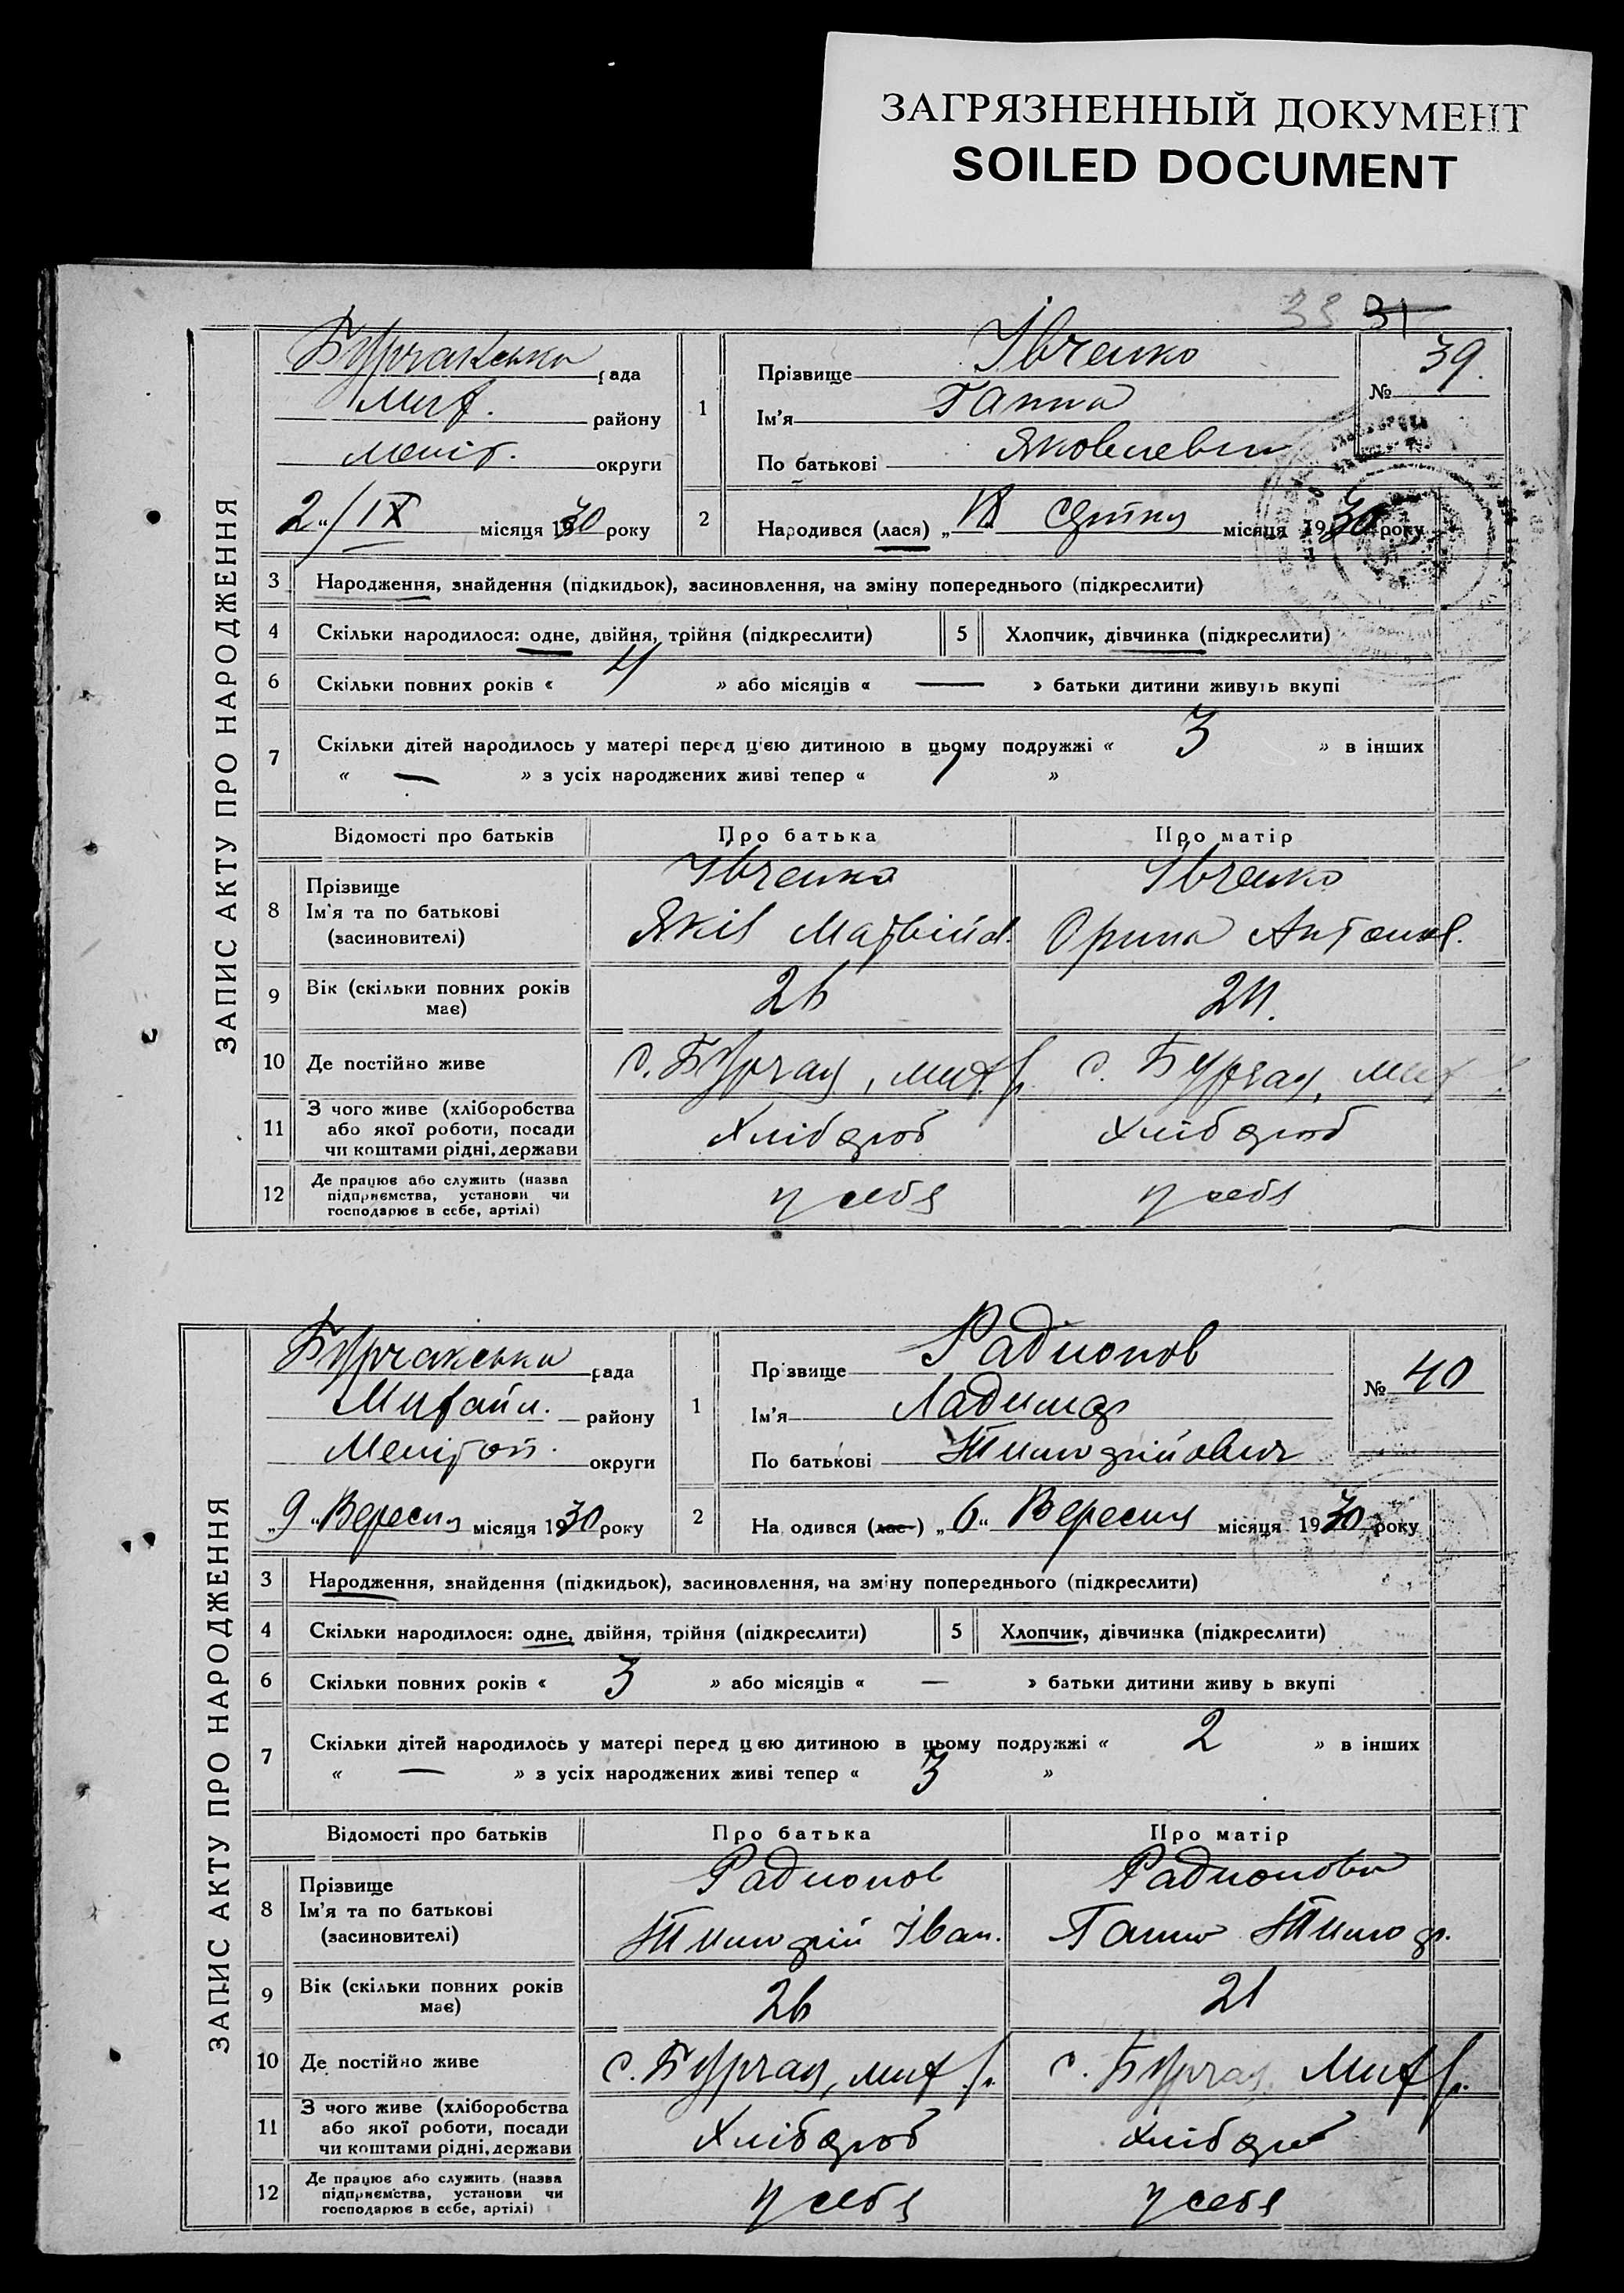 ЗАГРЯЗНЕННЫЙ ДОКУМЕНТ
SOILED DOCUMENT
33 31
ЗАПИС АКТУ ПРО НАРОДЖЕННЯ
Бурчакська рада
Мих. району
Меліт. округи
2"/IX місяця 1930 року
1
Прізвище Івченко
Ім'я Ганна
По батькові Яковлевна
№ 39.
2
Народився (лася) „ місяця 1930 року
3 Народження, знайдення (підкидьок), засиновлення, на зміну попереднього (підкреслити)
4 Скільки народилося: одне, двійня, трійня (підкреслити)
5 Хлопчик, дівчинка (підкреслити)
6 Скільки повних років « 4 » або місяців « — » батьки дитини живуть вкупі
7 Скільки дітей народилось у матері перед цією дитиною в цьому подружжі « 3 » в інших
« — » з усіх народжених живі тепер « »
Відомості про батьків Про батька Про матір
8 Прізвище Ім'я та по батькові (засиновителі)
Івченко Івченко
Яків Матвійов. Орина Антонов.
9 Вік (скільки повних років має) 26 24.
10 Де постійно живе с. Бурчак, Мих. р. с. Бурчак, Мих
11 З чого живе (хліборобства або якої роботи, посади чи коштами рідні, держави Хлібороб Хлібороб
12 Де працює або служить (назва підприємства, установи чи господарює в себе, артілі) у себя у себя
ЗАПИС АКТУ ПРО НАРОДЖЕННЯ
Бурчакська рада
Михайл. району
Мелітоп. округи
„9" Вересня місяця 1930 року
1
Прізвище Радионов
Ім'я Ладимор
По батькові Тимофійович
№ 40
2
Народився (лас-) „6" Вересня місяця 1930 року
3 Народження, знайдення (підкидьок), засиновлення, на зміну попереднього (підкреслити)
4 Скільки народилося: одне, двійня, трійня (підкреслити)
5 Хлопчик, дівчинка (підкреслити)
6 Скільки повних років « 3 » або місяців « — » батьки дитини живуть вкупі
7 Скільки дітей народилось у матері перед цією дитиною в цьому подружжі « 2 » в інших
« — » з усіх народжених живі тепер « 3 »
Відомості про батьків Про батька Про матір
8 Прізвище Ім'я та по батькові (засиновителі)
Радионов Радионова
Тимофій Іван. Ганна Тимоф.
9 Вік (скільки повних років має) 26 21
10 Де постійно живе с. Бурчак, Мих р. с. Бурчак, Мих р.
11 З чого живе (хліборобства або якої роботи, посади чи коштами рідні, держави Хлібороб Хлібороб
12 Де працює або служить (назва підприємства, установи чи господарює в себе, артілі) у себя у себя